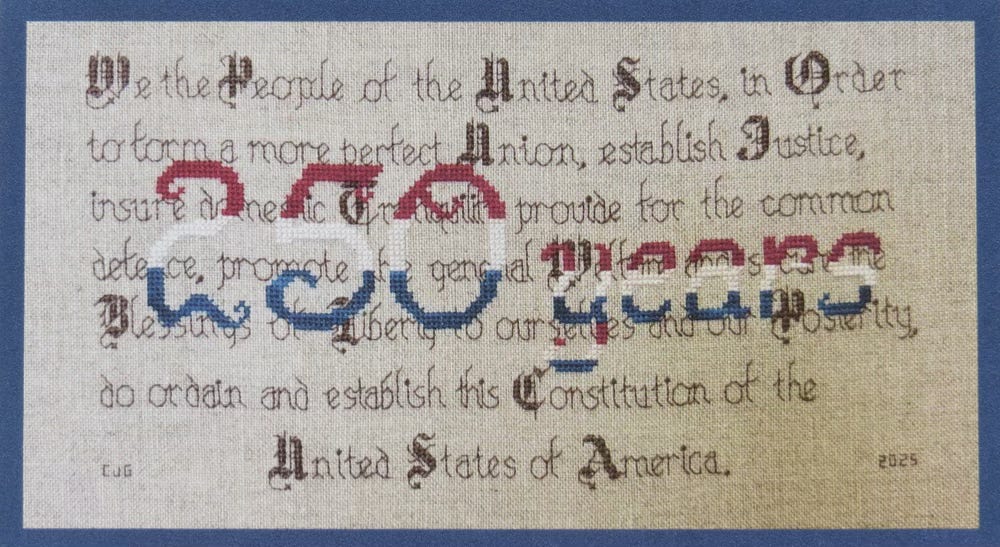 We the People of the United States, in Order
to form a more perfect Union, establish Justice,
insure domestic Tranquility provide for the common
250 years
defence, promote the general Welfare and secure the
Blessings of Liberty to ourselves and our Posterity,
do ordain and establish this Constitution of the
United States of America.
CJG
2025